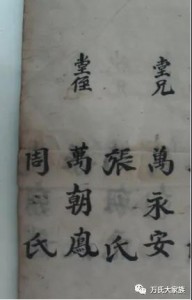 堂兄 萬永安
張氏
堂侄 萬朝鳳
周氏
万氏大家族